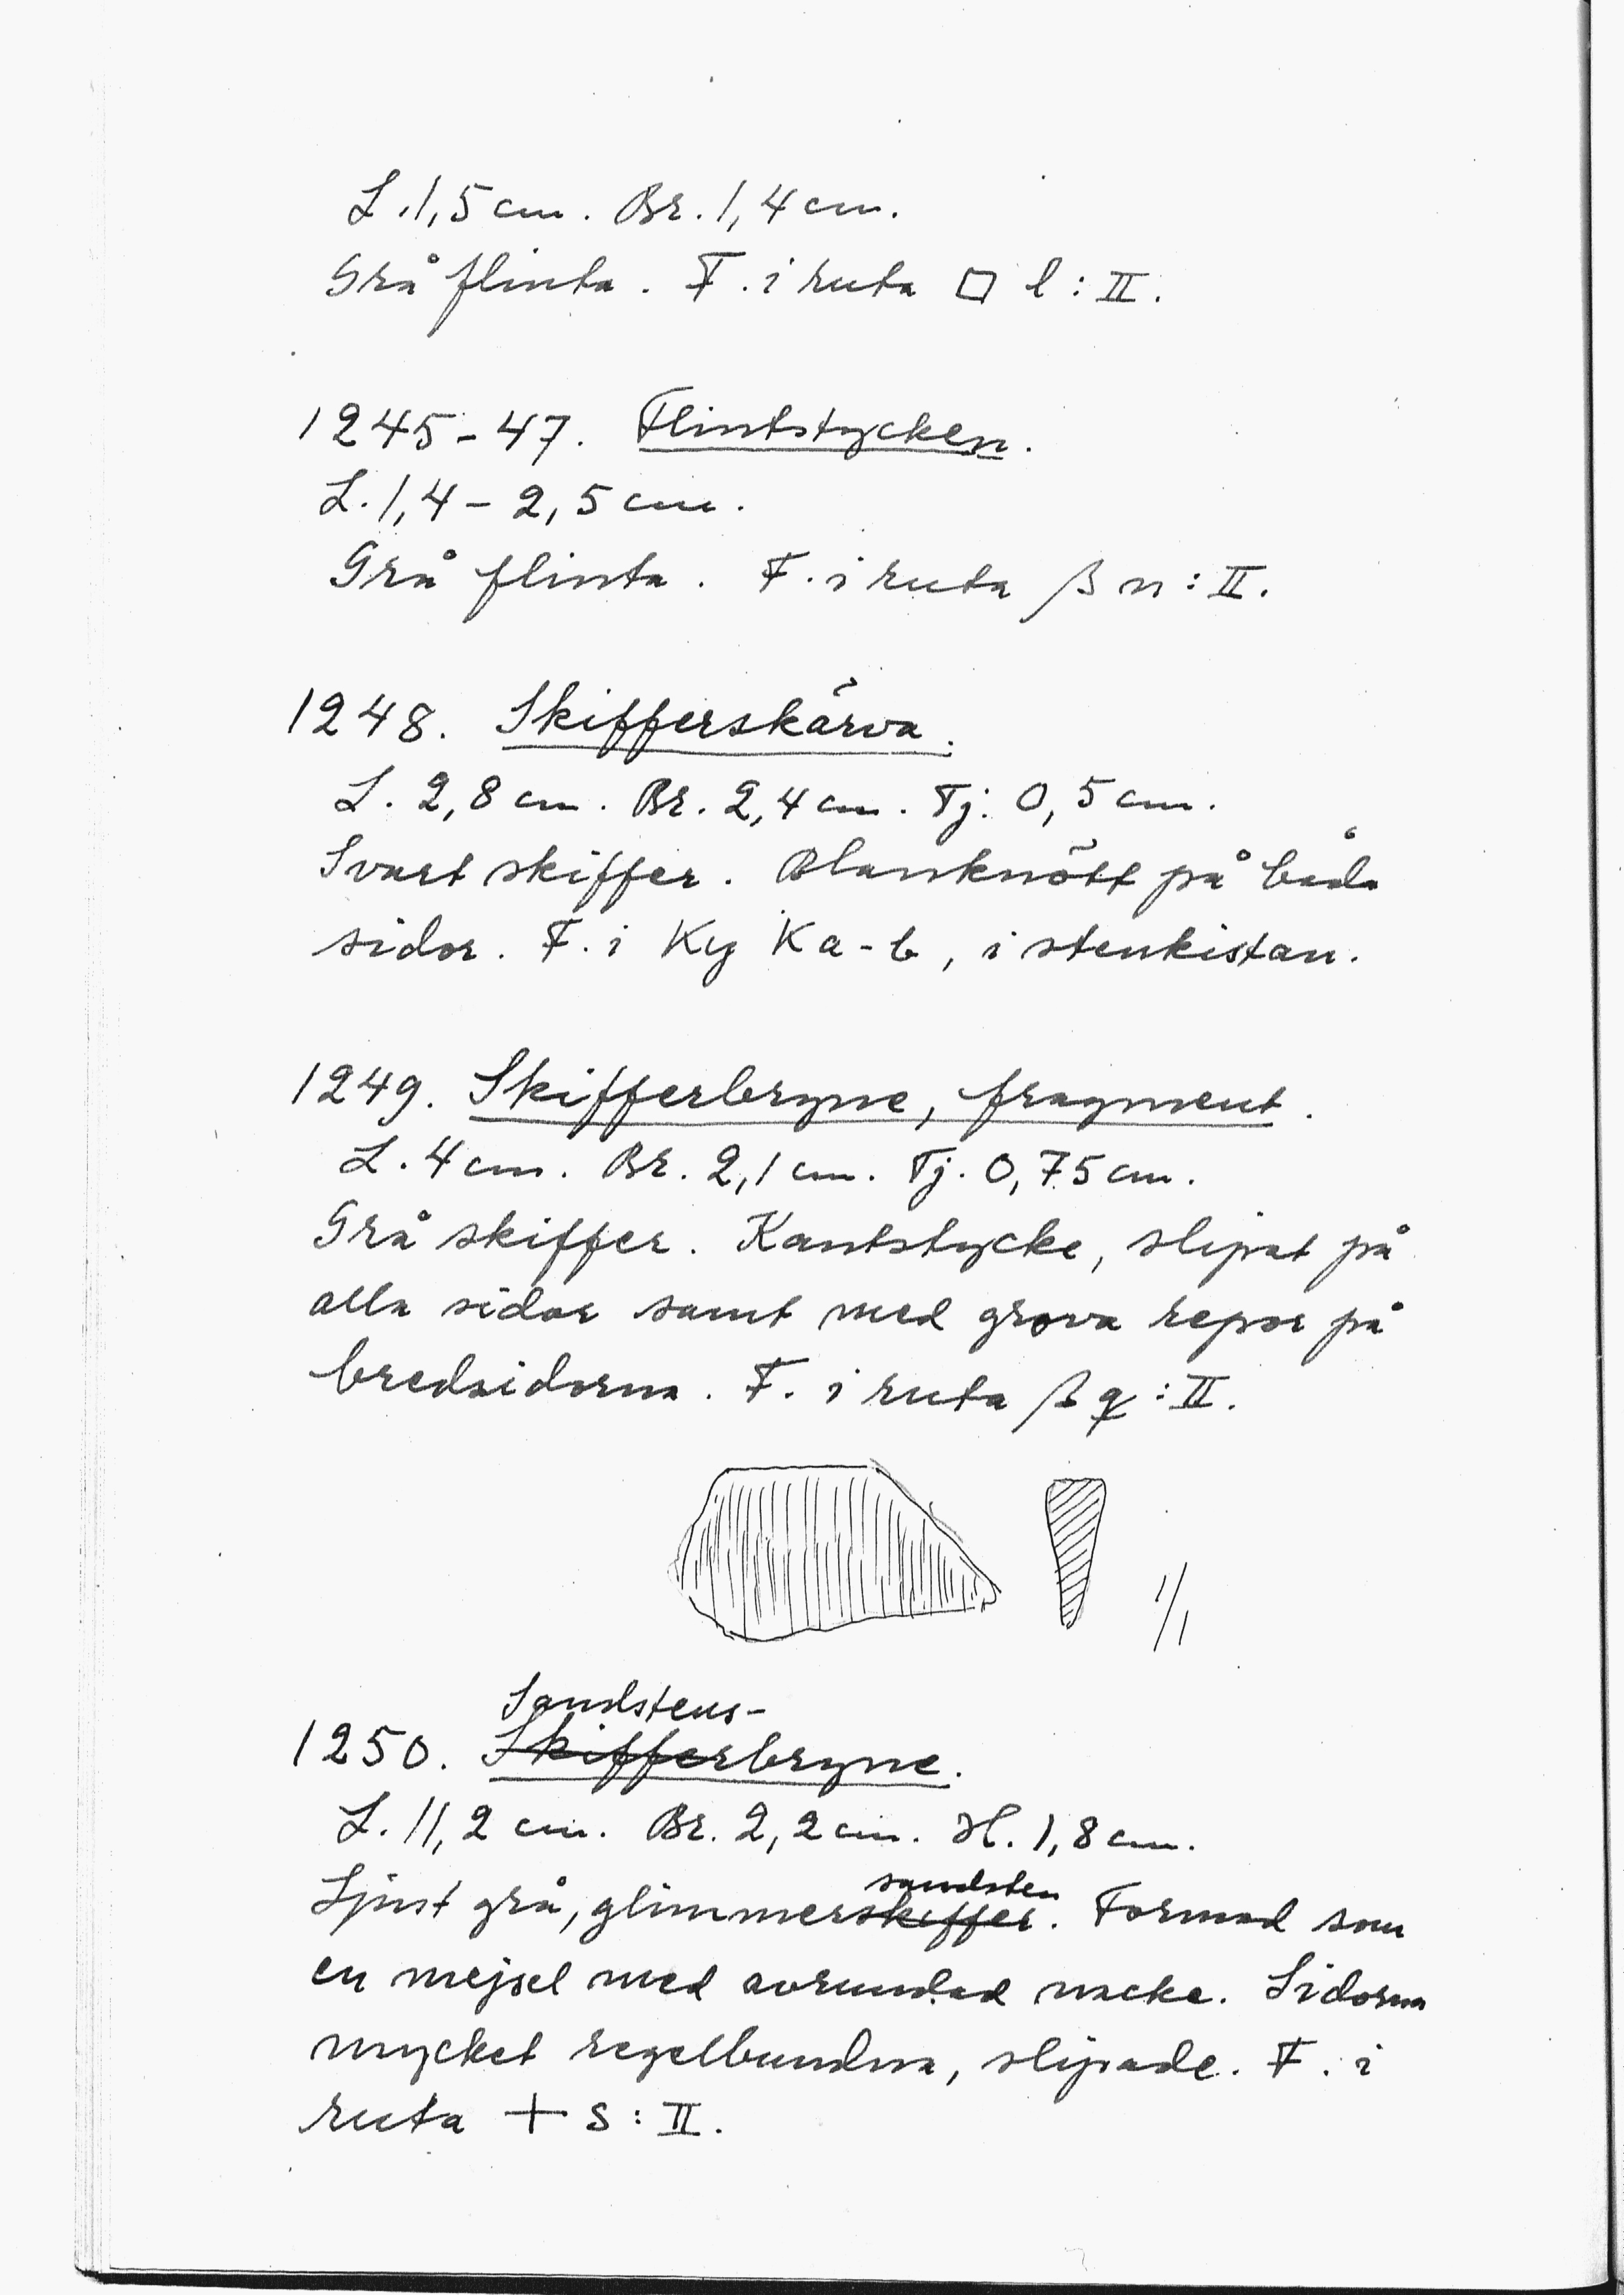 L. 1,5 cm. Br. 1,4 cm.
Grå flinta. F. i ruta □ l : II.
1245-47. Flintstycken.
L. 1,4 - 2,5 cm.
Grå flinta. F. i ruta β n : II.
1248. Skifferskärva.
L. 2,8 cm. Br. 2,4 cm. Tj. 0,5 cm.
Svart skiffer. Blanknött på båda
sidor. F. i Ky K a-b, i stenkistan.
1249. Skifferbryne, fragment.
L. 4 cm. Br. 2,1 cm. Tj. 0,75 cm.
Grå skiffer. Kantstycke, slipat på
alla sidor samt med grova repor på
bredsidorna. F. i ruta β q : II.
1/1
Sandstens-
1250. Skifferbryne.
L. 11,2 cm. Br. 2,2 cm. H. 1,8 cm.
sandsten
Ljust grå, glimmerskiffer. Formad som
en mejsel med avrundad nacke. Sidorna
mycket regelbundna, slipade. F. i
ruta + s : II.